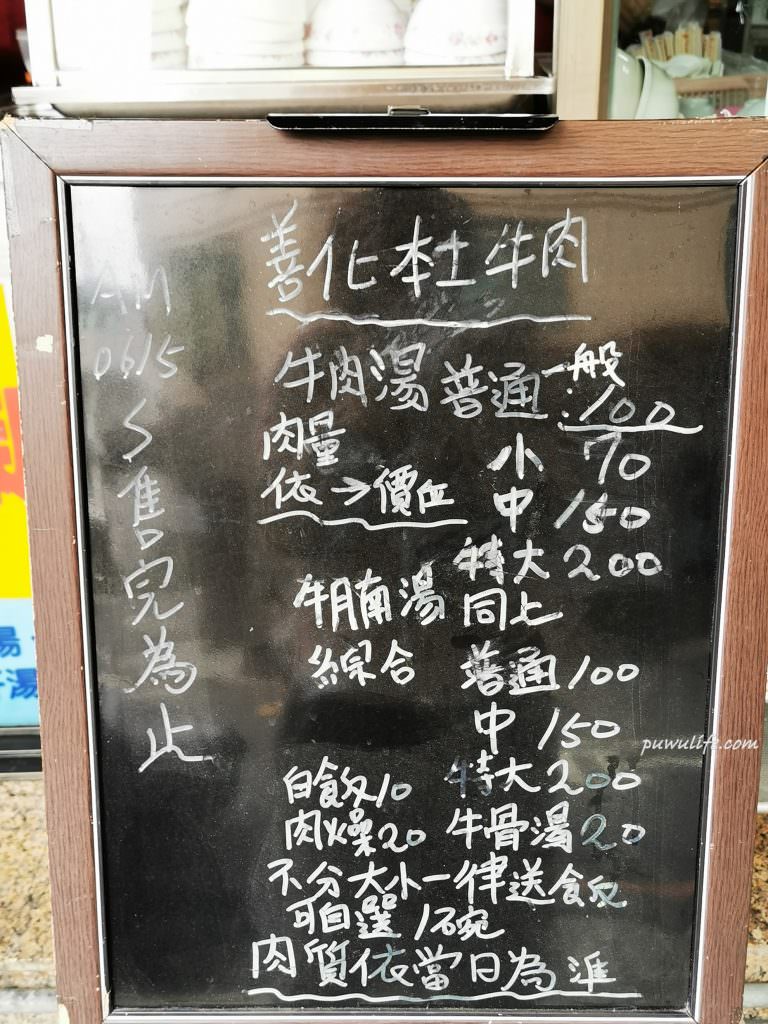 善化本土牛肉
AM
0615
〜
售完為止
牛肉湯 普通 一般:100
肉量 小 70
依→價皿 中 150
特大 200
牛腩湯 同上
綜合 普通 100
中 150
特大 200
白飯 10
肉燥 20 牛骨湯 20
不分大小一律送飯
可自選 1碗
肉質依當日為準
puwulife.com
湯
湯